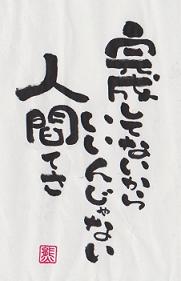 完成してないから
いいんじゃない
人間てさ